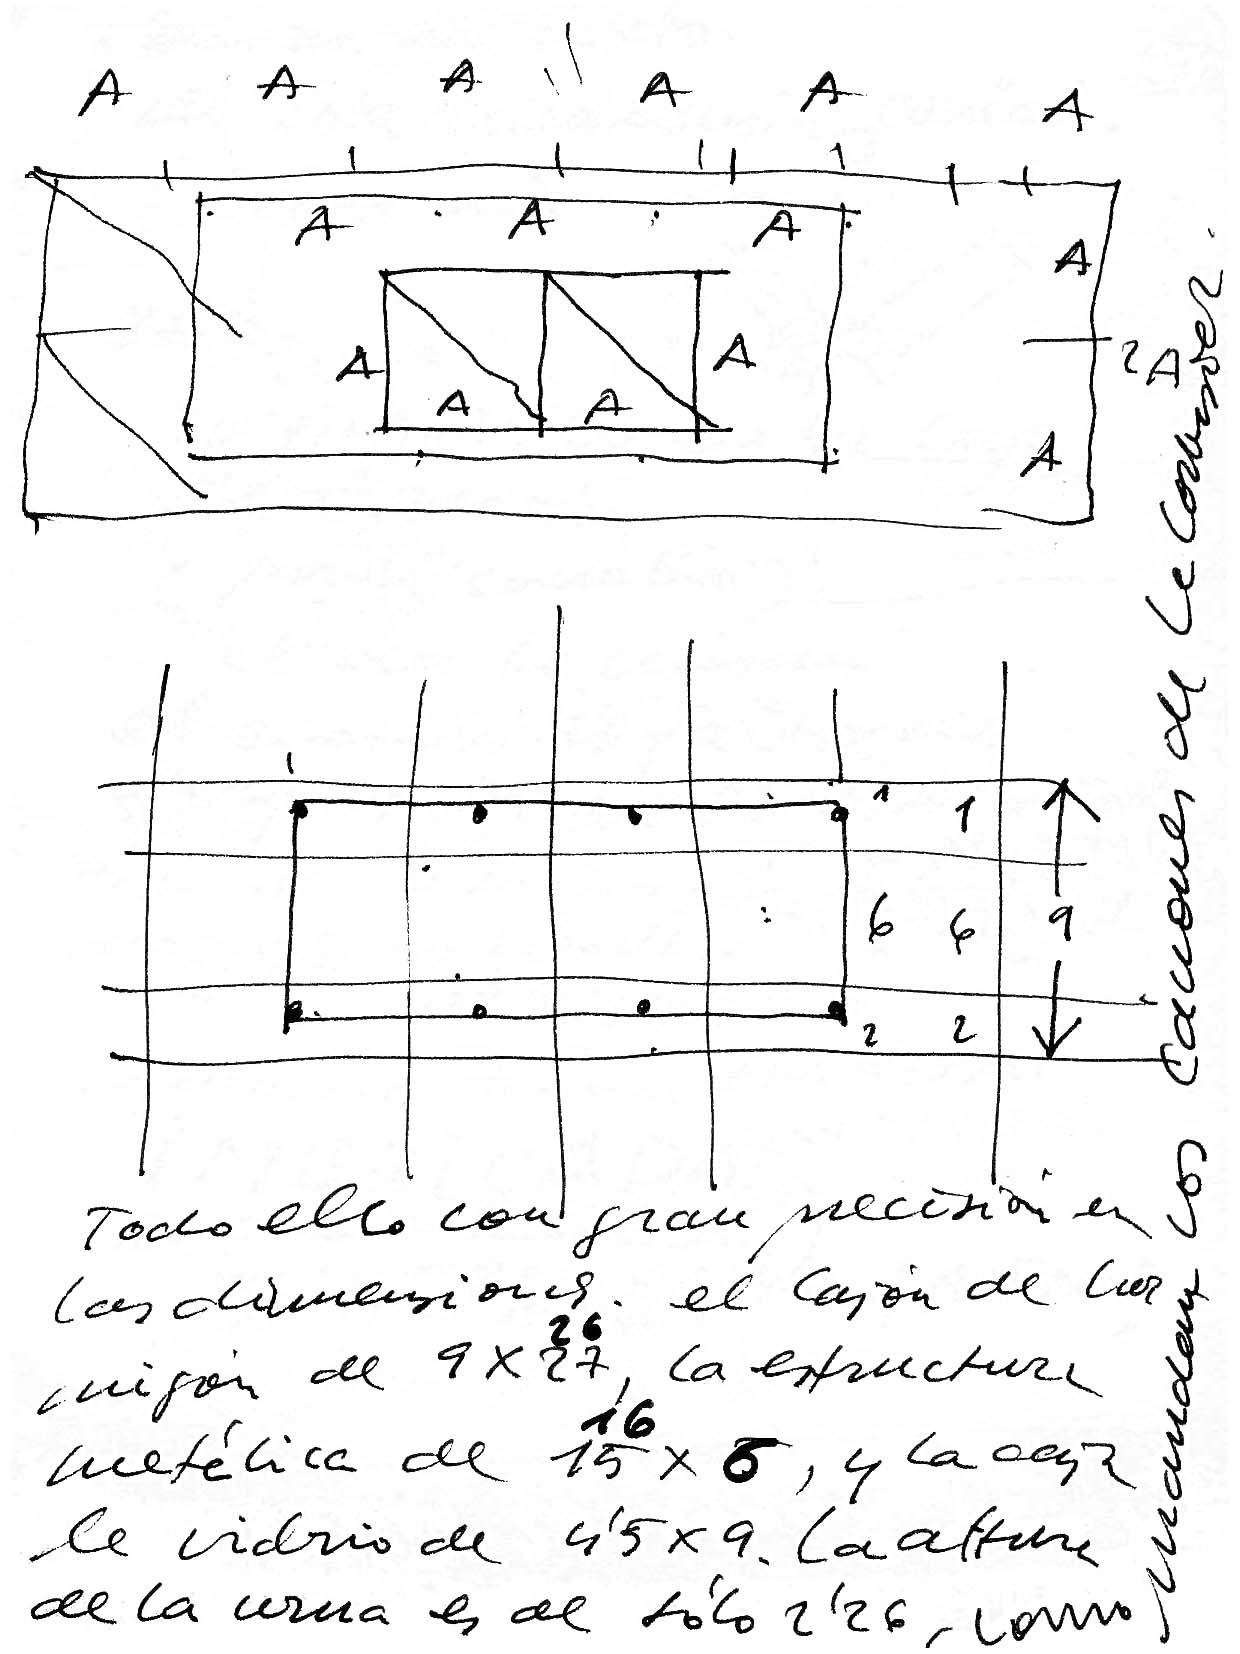 A A A A A A
A A A A
A A A 2A
A A A
1 1
6 6 9
2 2
Todo ello con gran precisión en
las dimensiones. el cajón de hor
migón de 9 x 27, la estructura
26
metálica de 15 x 6, y la caja
16
de vidrio de 4'5 x 9. La altura
de la urna es de sólo 2'26, como
mandan los cánones de Le Corbusier.